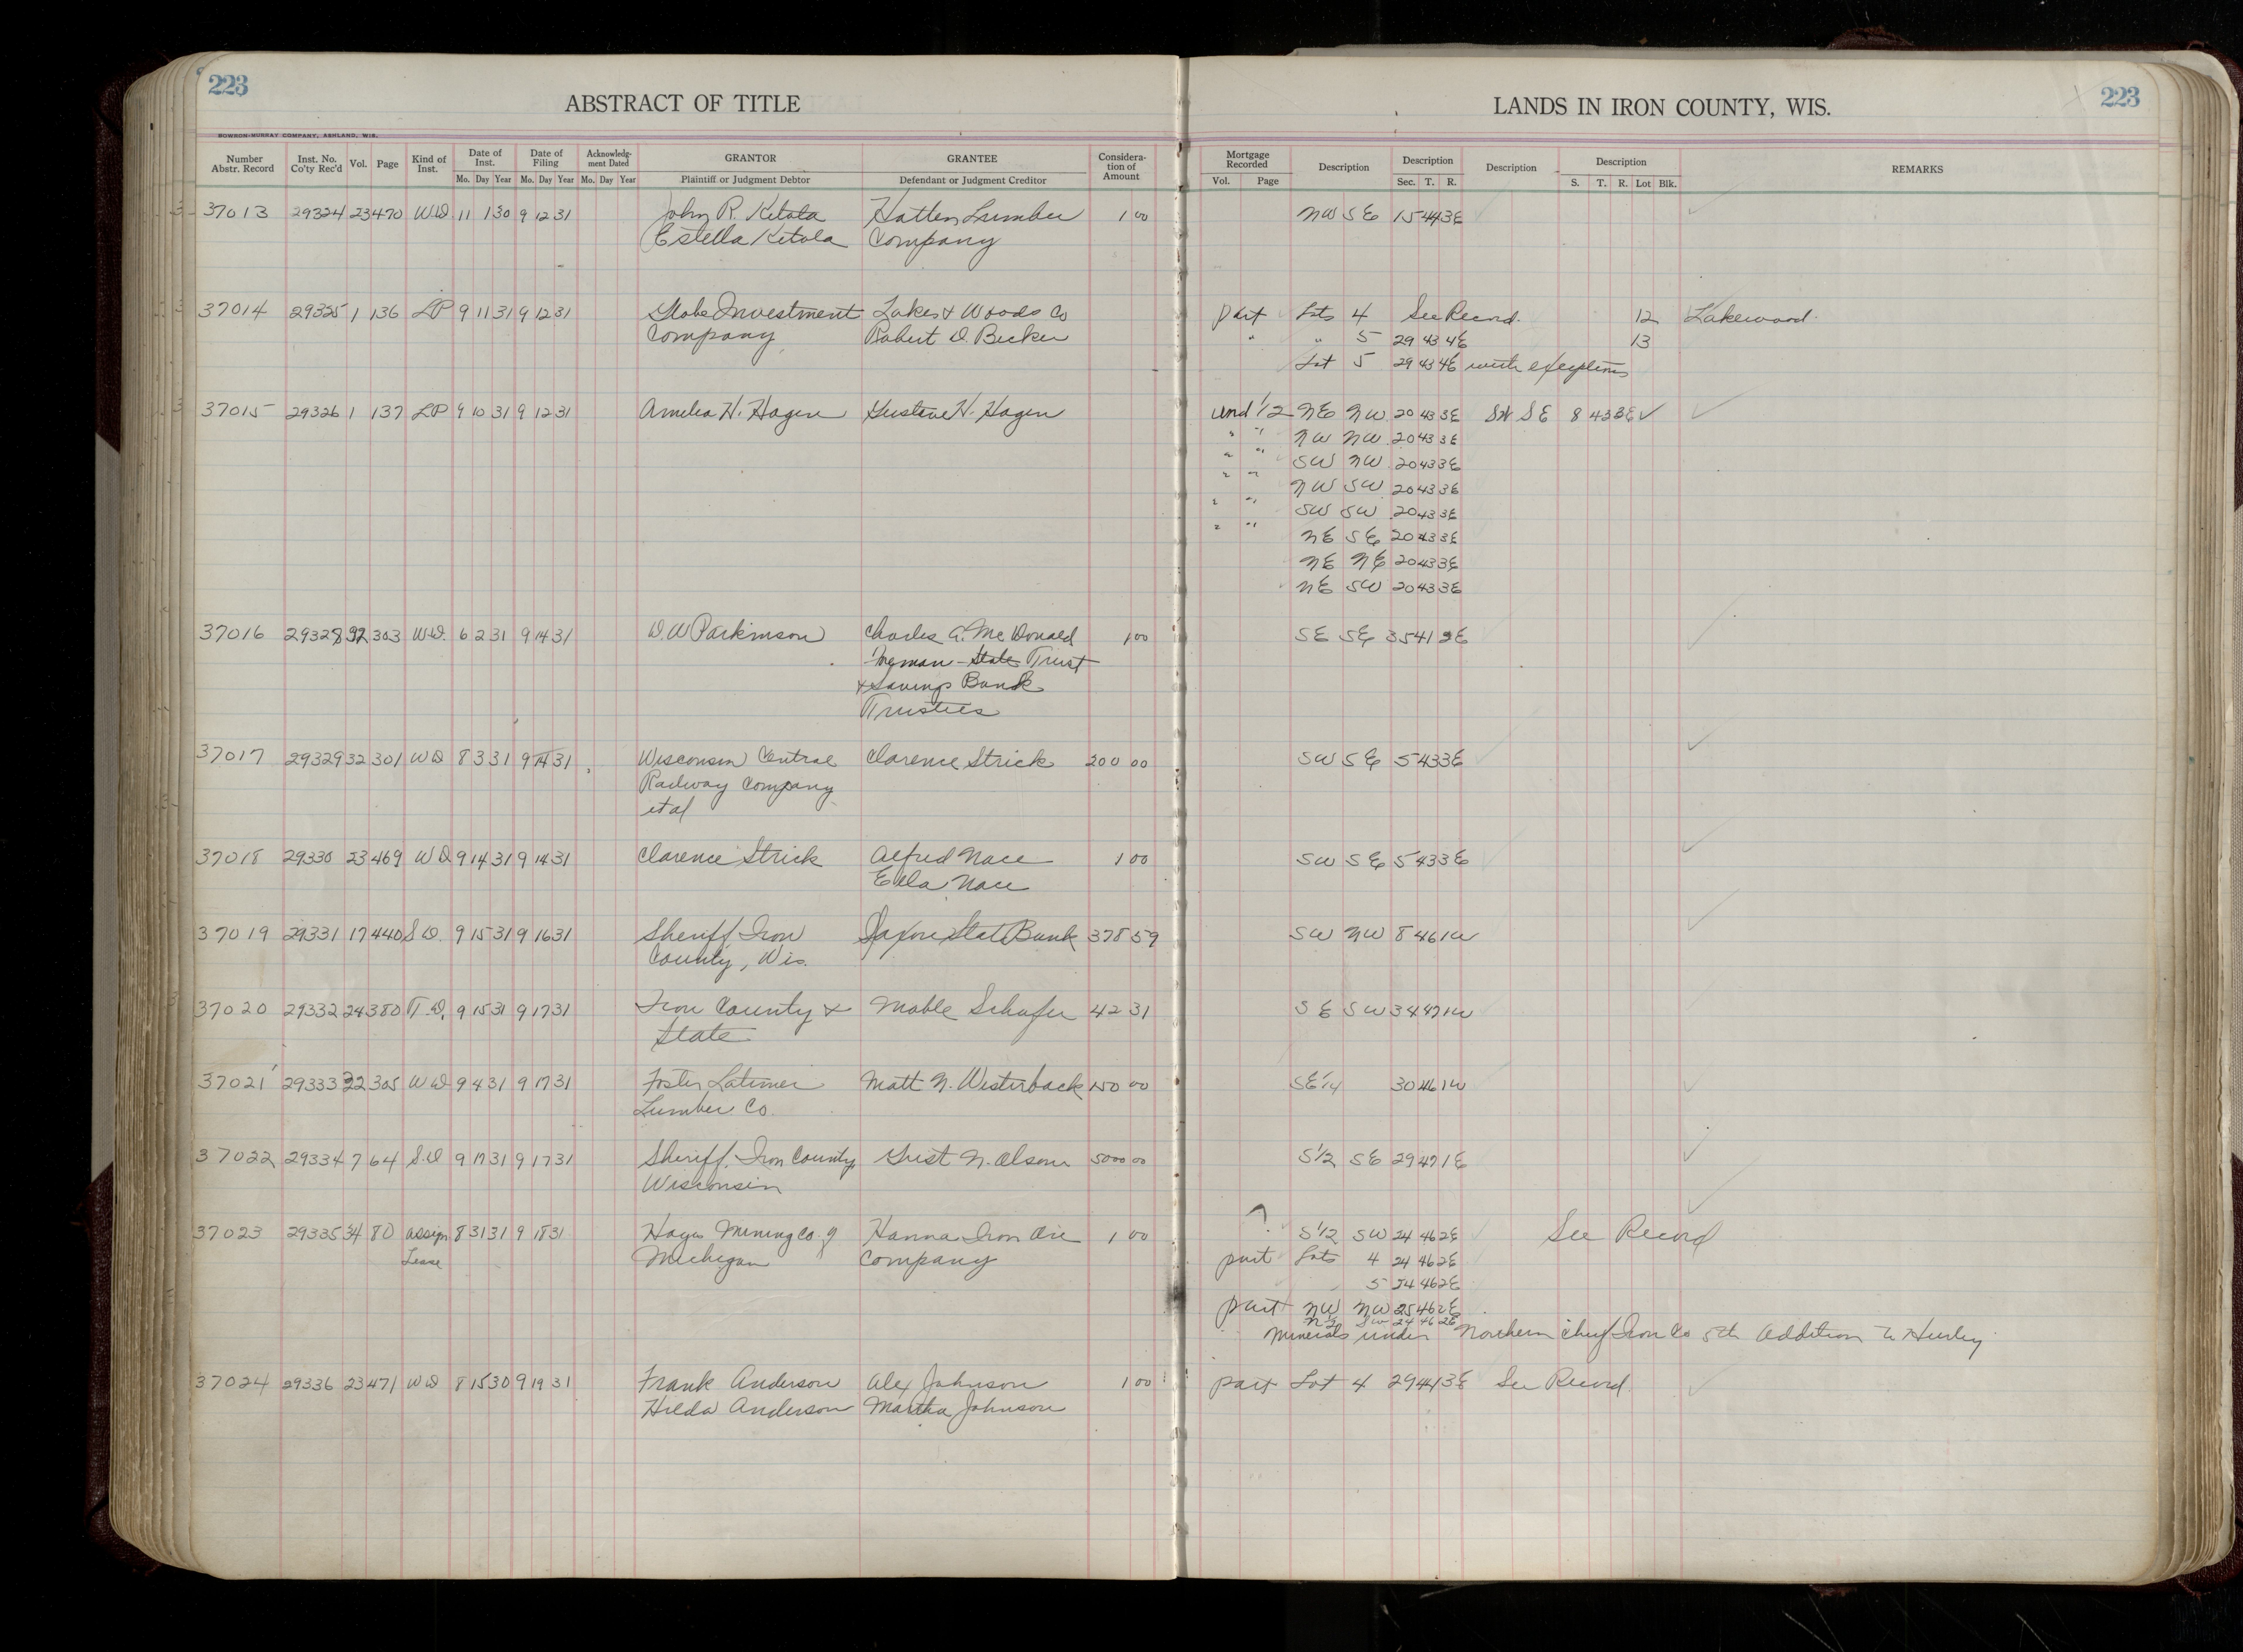 223
ABSTRACT OF TITLE
LANDS IN IRON COUNTY, WIS.
223
BOWRON-MURRAY COMPANY, ASHLAND, WIS.
Number Abstr. Record | Inst. No. Co'ty Rec'd | Vol. | Page | Kind of Inst. | Date of Inst. Mo. Day Year | Date of Filing Mo. Day Year | Acknowledg-ment Dated Mo. Day Year | GRANTOR Plaintiff or Judgment Debtor | GRANTEE Defendant or Judgment Creditor | Considera-tion of Amount | Mortgage Recorded Vol. Page | Description | Description Sec. T. R. | Description | Description S. T. R. Lot Blk. | REMARKS
37013 29324 23 470 WD 11 1 30 9 12 31 John R. Ketola Hatten Lumber 1 00 NW SE 15 44 3E
Estella Ketola Company
37014 29325 1 136 LP 9 11 31 9 12 31 Globe Investment Lakes & Woods Co part Lots 4 See Record. 12 Lakewood.
Company Robert D. Becker " " 5 29 43 4E 13
Lot 5 29 43 4E with exceptions
37015 29326 1 137 LP 9 10 31 9 12 31 Amelia H. Hagen Gustave H. Hagen und 1/2 NE NW 20 43 3E SW SE 8 43 3E ✓
" " NW NW 20 43 3E
" " SW NW 20 43 3E
" " NW SW 20 43 3E
" " SW SW 20 43 3E
" " NE SE 20 43 3E
NE NE 20 43 3E
NE SW 20 43 3E
37016 29328 32 303 WD. 6 2 31 9 14 31 D. W Parkinson Charles A. McDonald 1 00 SE SE 35 41 2E
Foreman-State Trust
& Savings Bank
Trustees
37017 29329 32 301 WD 8 3 31 9 14 31 Wisconsin Central Clarence Strick 200 00 SW SE 5 43 3E
Railway Company
et al
37018 29330 23 469 WD 9 14 31 9 14 31 Clarence Strick Alfred Nace 1 00 SW SE 5 43 3E
Ella Nace
37019 29331 17 440 S.D. 9 15 31 9 16 31 Sheriff, Iron Saxon State Bank 378 59 SW NW 8 46 1W
County, Wis.
37020 29332 24 380 T.D. 9 15 31 9 17 31 Iron County & Mable Schafer 42 31 SE SW 34 47 1W
State
37021 29333 32 305 WD 9 4 31 9 17 31 Foster Latimer Matt N. Westerback 150 00 SE 1/4 30 46 1W
Lumber Co.
37022 29334 7 64 S.D 9 17 31 9 17 31 Sheriff, Iron County Gust N. Olson 5000 00 S 1/2 SE 29 47 1E
Wisconsin
37023 29335 34 80 Assign 8 31 31 9 18 31 Hayes Mining Co. of Hanna Iron Ore 1 00 ? S 1/2 SW 24 46 2E See Record
Lease Michigan Company part Lots 4 24 46 2E
5 24 46 2E
part NW NW 25 46 2E
N 1/2 SW 24 46 2E
Minerals under Northern Chief Iron Co 5th Addition to Hurley
37024 29336 23 471 WD 8 15 30 9 19 31 Frank Anderson Alex Johnson 1 00 part Lot 4 29 44 3E See Record.
Hilda Anderson Martha Johnson